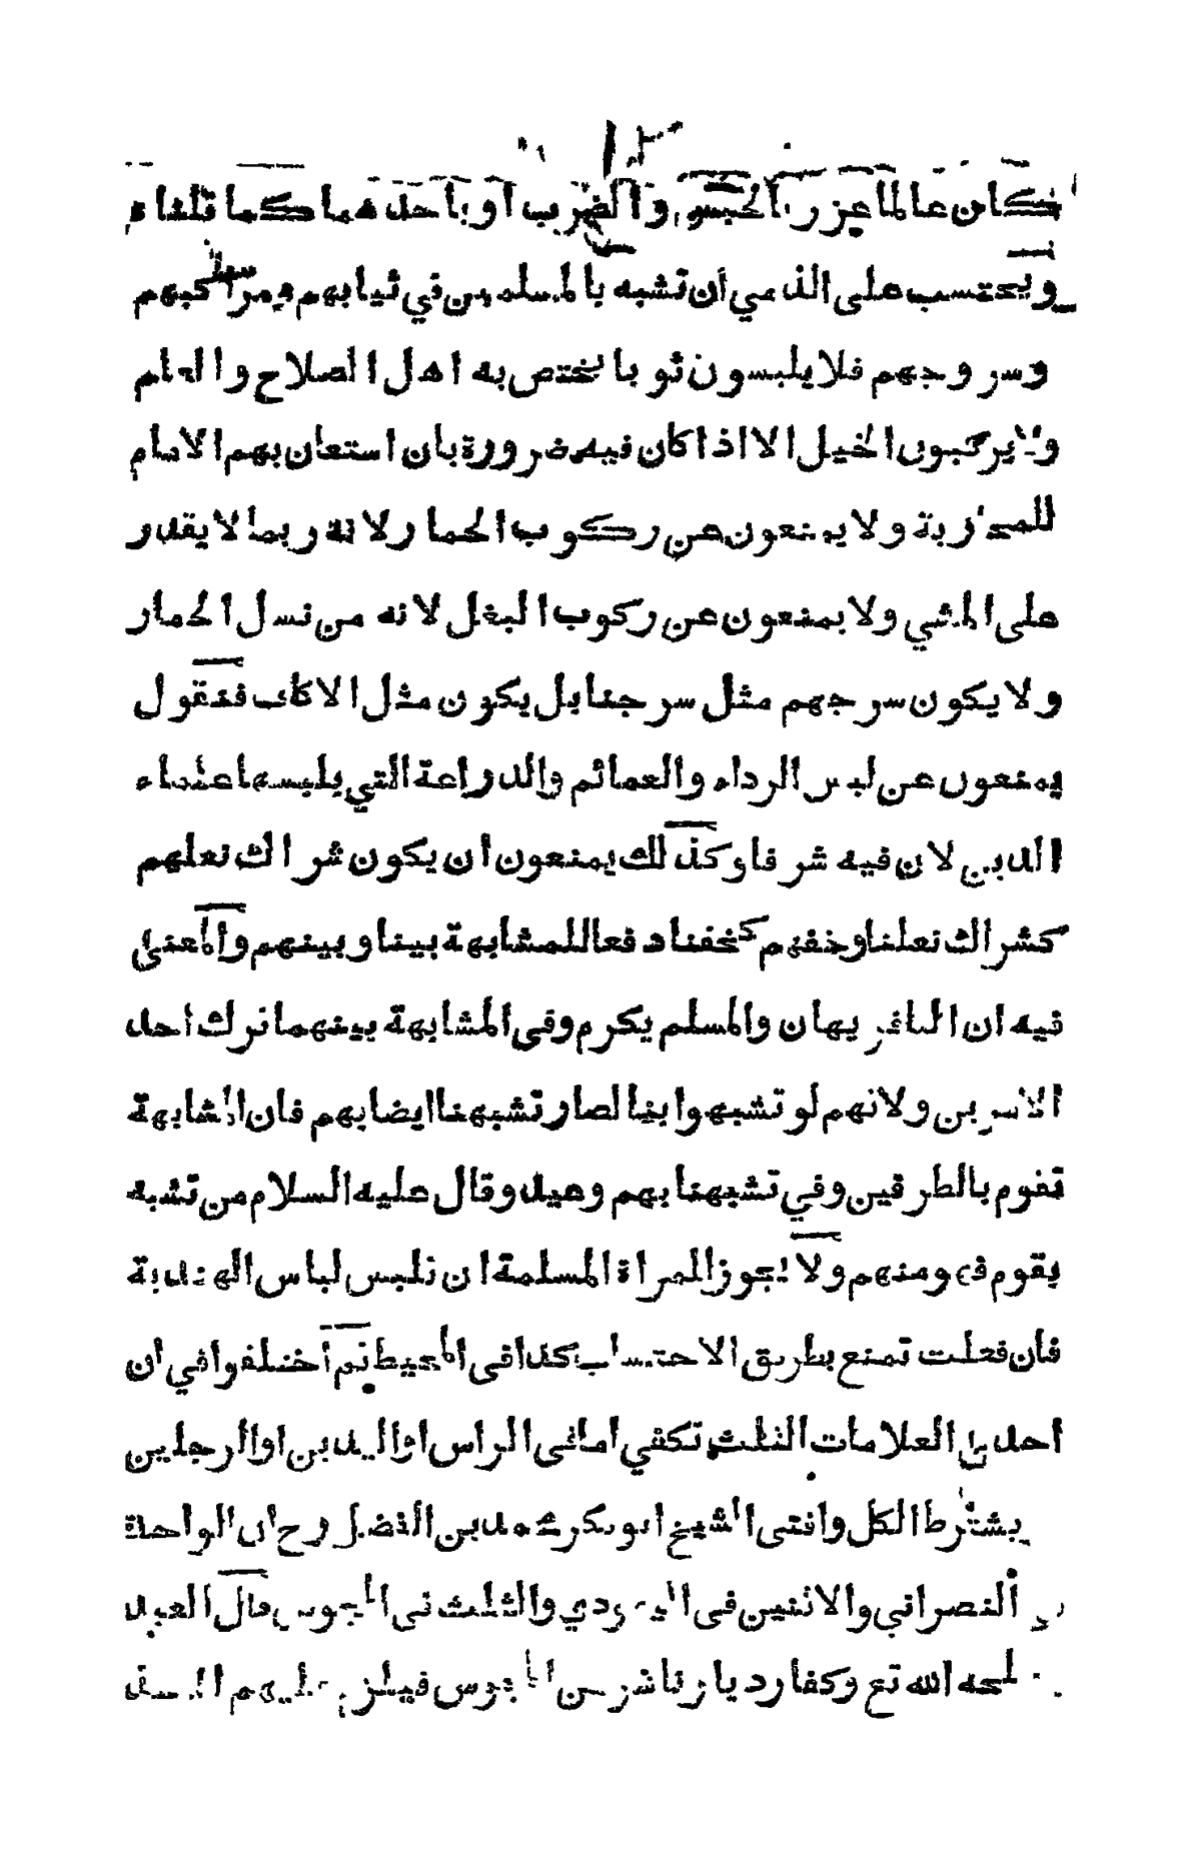 فكان عالما عزر بالحبس والضرب او باحدهما كما تلشاء
ويحتسب على الذمي أن تشبه بالمسلمين في ثيابهم ومراكبهم
وسروجهم فلا يلبسون ثوبا يختص به اهل الصلاح والعلم
ولا يركبون الخيل الا اذا كان فيه ضرورة بان استعان بهم الامام
للمحاربة ولا يمنعون عن ركوب الحمار لانه ربما لا يقدر
على المشي ولا يمنعون عن ركوب البغل لانه من نسل الحمار
ولا يكون سرجهم مثل سرجنا بل يكون مثل الاكاف فنقول
يمنعون عن لبس الرداء والعمائم والدراعة التي يلبسها علماء
الدين لان فيه شرفا وكذلك يمنعون ان يكون شراك نعلهم
كشراك نعلنا وخفهم كخفنا دفعا للمشابهة بيننا وبينهم والمعنى
فيه ان الكافر يهان والمسلم يكرم وفى المشابهة بينهما ترك احد
الامرين ولانهم لو تشبهوا بنا لصار تشبهنا ايضا بهم فان المشابهة
تقوم بالطرفين وفي تشبهنا بهم وعيد وقال عليه السلام من تشبه
بقوم فهو منهم ولا يجوز للمراة المسلمة ان تلبس لباس الهندية
فان فعلت تمنع بطريق الاحتساب كذا فى المحيط ثم أختلفوا في ان
احدى العلامات الثلث تكفي اما فى الراس او اليدين او الرجلين
يشترط الكل وافتى الشيخ ابو بكر محمد بن الفضل رح ان الواحدة
النصراني والاثنين فى اليهودي والثلث فى المجوس قال العبد
الله تع وكفار ديارنا شر من المجوس فيلزم عليهم